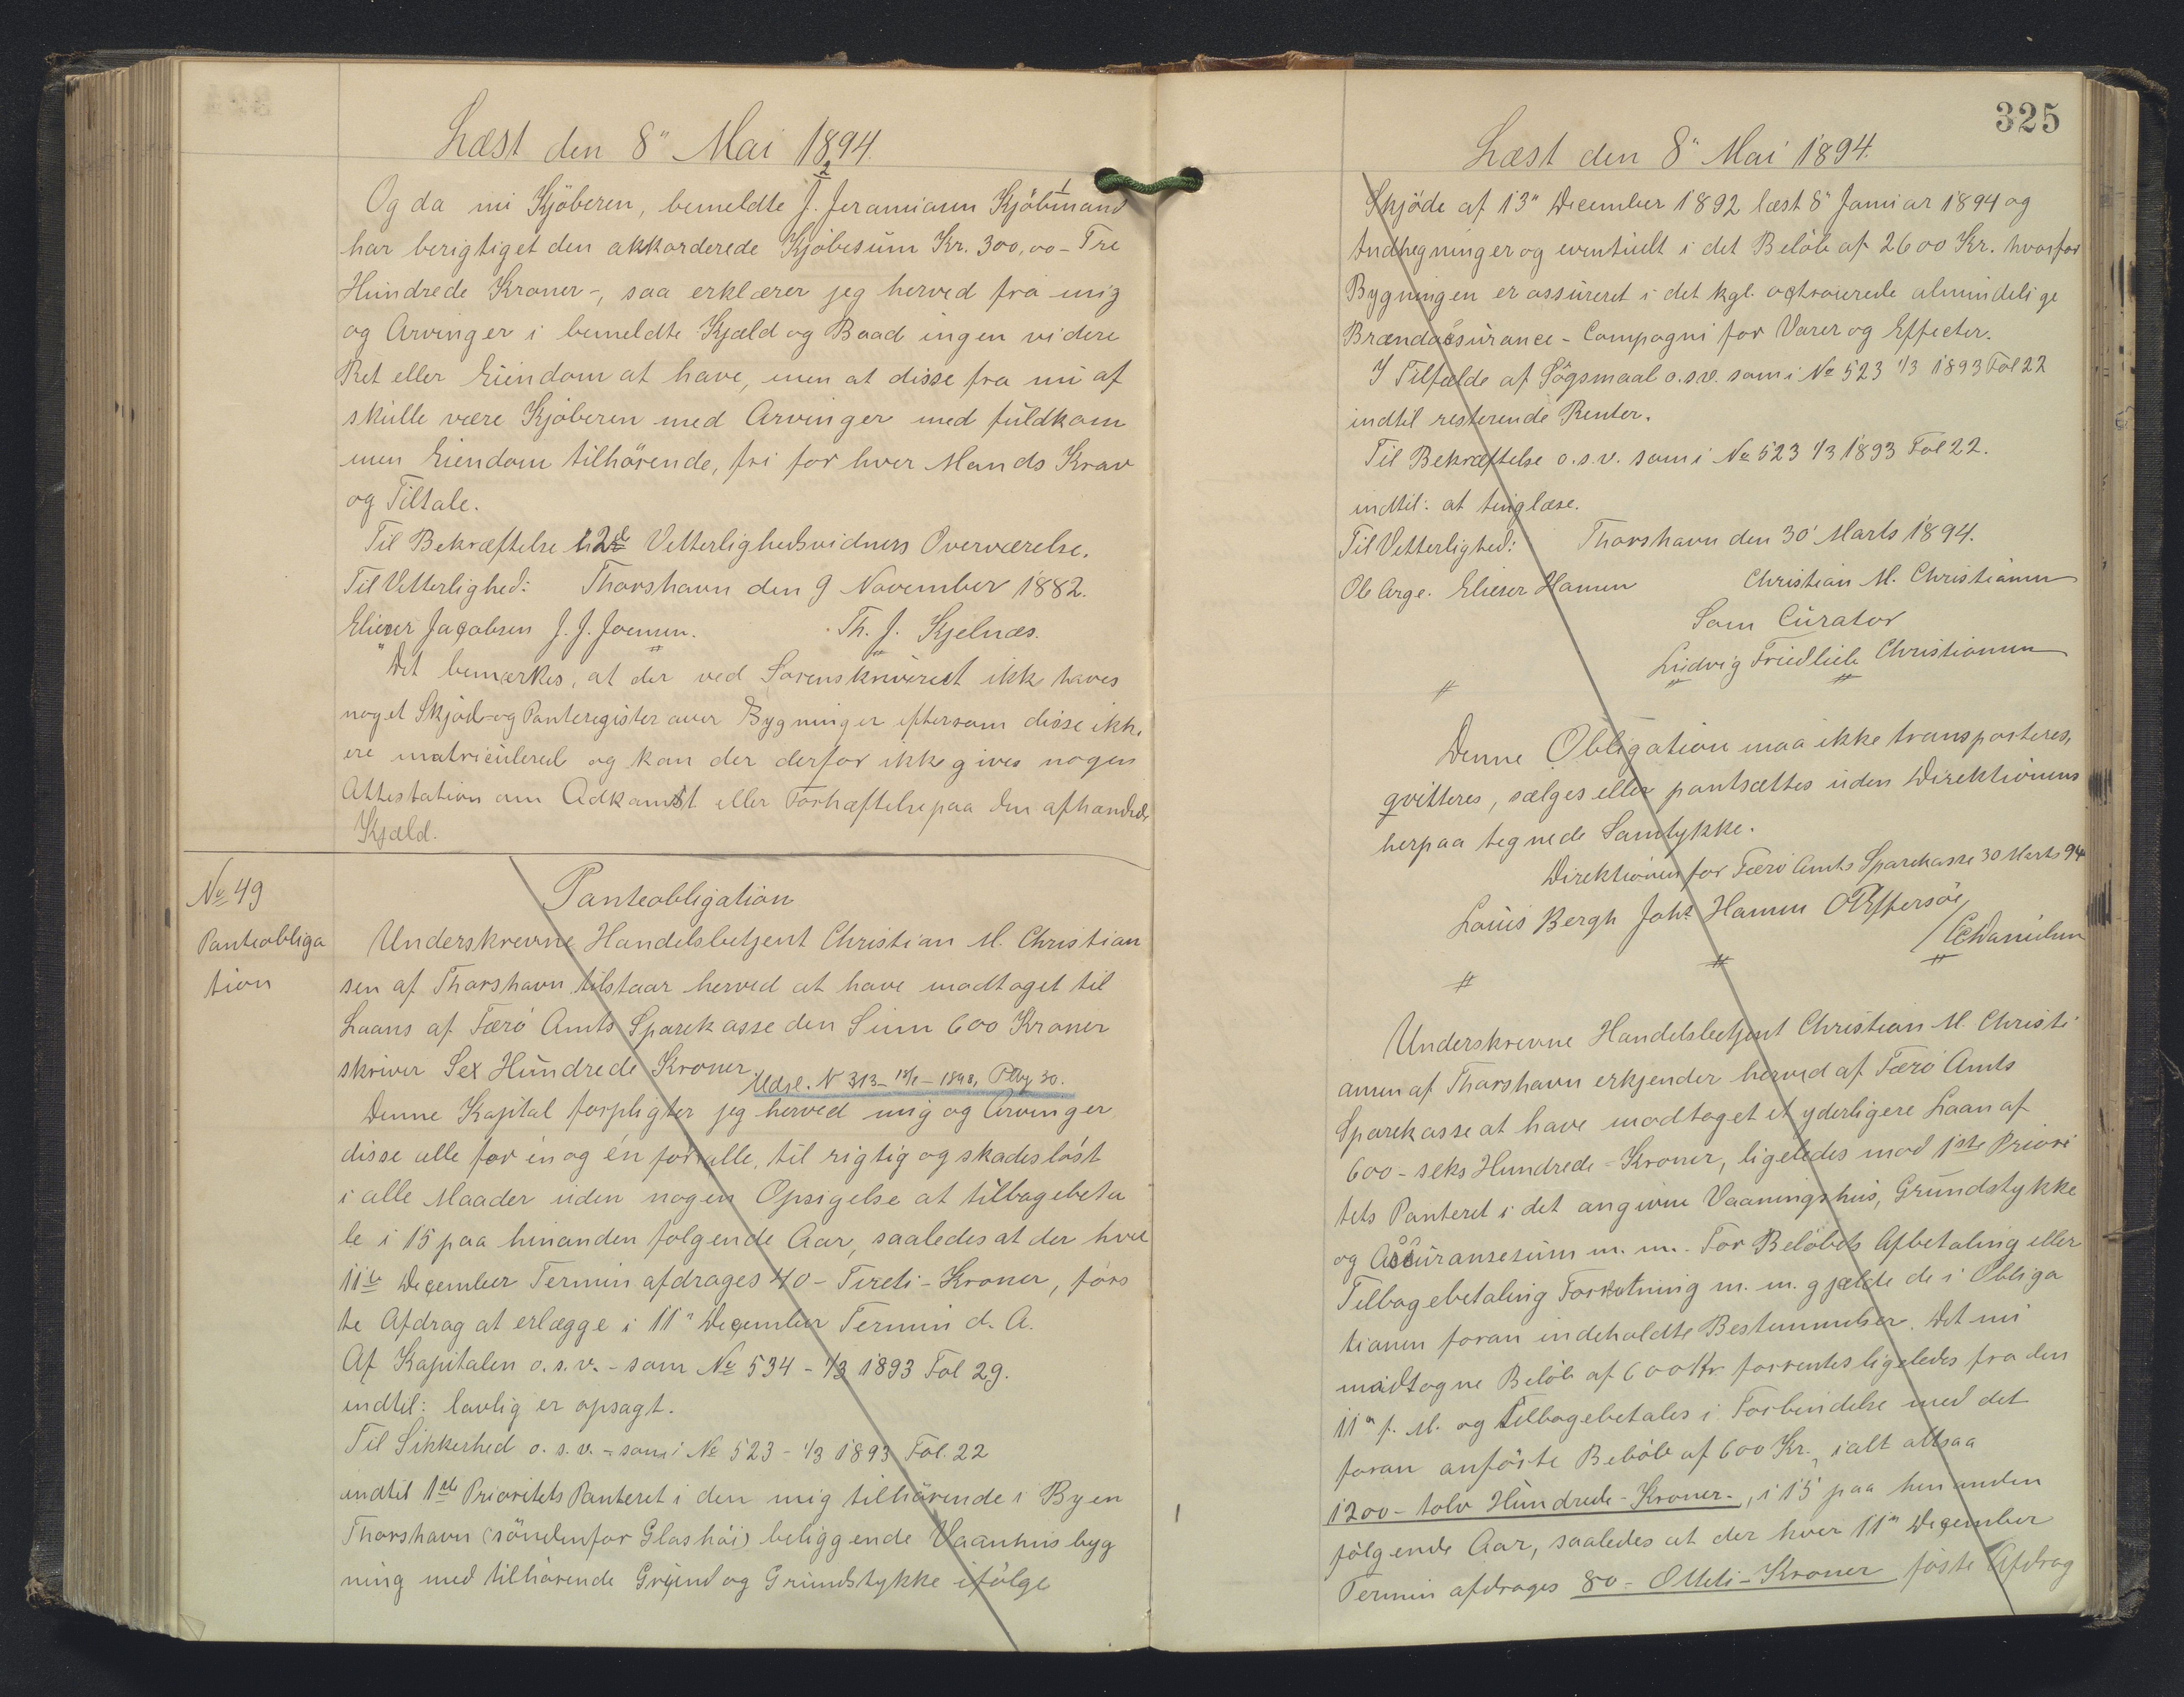 Læst den 8" Mai 1894.
Og da nu Kjöberen, bemeldte J. Jeramiasen Kjöbmand
har berigtiget den akkorderede Kjöbesum Kr. 300,00 - Tre
Hundrede Kroner -, saa erklærer jeg herved fra mig
og Arvinger i bemeldte Kjæld og Baad ingen videre
Ret eller Eiendom at have, men at disse fra nu af
skulle være Kjöberen med Arvinger med fuldkom
men Eiendom tilhörende, fri for hver Mands Krav
og Tiltale.
Til Bekræftelse 2de Vetterlighedsvidners Overværelse.
Til Vetterlighed: Thorshavn den 9 November 1882.
Elieser Jacobsen J. J. Joensen. Th. J. Kjelnæs.
Det bemærkes, at der ved Sorenskriveriet ikke haves
noget Skjöde- og Panteregister over Bygninger eftersom disse ikke
ere matriculered og kan der derfor ikke gives nogen
Attestation om Adkomst eller Forhæftelse paa den afhændede
Kjæld.
No 49
Panteobliga
tion
Panteobligation
Underskrevne Handelsbetjent Christian M. Christian
sen af Thorshavn tilstaar herved at have modtaget til
Laans af Færö Amts Sparekasse den Sum 600 Kroner
skriver Sex Hundrede Kroner.
Udsl. N 313 - 1898, 30.
Denne Kapital forpligter jeg herved mig og Arvinger
disse alle for én og én for alle, til rigtig og skadeslöst
i alle Maader uden nogen Opsigelse at tilbagebeta
le i 15 paa hinanden fölgende Aar, saaledes at der hver
11te December Termin afdrages 40 - Fireti - Kroner, förs
te Afdrag at erlægge i 11" December Termin d. A.
Af Kapitalen o.s.v. - som No 534 - 1/3 1893 Fol 29.
indtil: lovlig er opsagt.
Til Sikkerhed o.s.v. - som i No 523 - 1/3 1893 Fol. 22
indtil 1ste Prioritets Panteret i den mig tilhörende i Byen
Thorshavn (söndenfor Glashöi) beliggende Vaanhusbyg
ning med tilhörende Grund og Grundstykke ifölge
325
Læst den 8" Mai 1894.
Skjöde af 13" December 1892 læst 8" Januar 1894 og
Indhegninger og eventuelt i det Belöb af 2600 Kr. hvorfor
Bygningen er assureret i det kgl. octroierede almindelige
Brandassurance - Compagni for Varer og Effecter.
I Tilfælde af Sögsmaal o.s.v. som i No 523 1/3 1893 Fol 22
indtil resterende Renter.
Til Bekræftelse o.s.v. som i No 523 1/3 1893 Fol 22.
indtil: at tinglæse.
Til Vetterlighed: Thorshavn den 30' Marts 1894.
Ole Arge. Elieser Hansen Christian M. Christiansen
Som Curator
Ludvig Friedlieb Christiansen
Denne Obligation maa ikke transporteres,
qvitteres, sælges eller pantsættes uden Direktionens
herpaa tegnede Samtykke.
Direktionen for Færö Amts Sparekasse 30 Marts 94
Louis Bergh Johs Hansen O Effersöe
/ Danielsen
Underskrevne Handelsbetjent Christian M. Christi
ansen af Thorshavn erkjender herved af Færö Amts
Sparekasse at have modtaget et yderligere Laan af
600 - seks Hundrede - Kroner, ligeledes mod 1ste Priori
tets Panteret i det angivne Vaaningshus, Grundstykke
og Assuransesum m. m. - For Belöbets Afbetaling eller
Tilbagebetaling Forretning m. m. gjælde de i Obliga
tionen foran indeholdte Bestemmelser. Det nu
modtagne Belöb af 600 Kr. forrentes ligeledes fra den
11" f. M. og tilbagebetales i Forbindelse med det
foran anförte Belöb af 600 Kr., ialt altsaa
1200 - tolv Hundrede - Kroner -, i 15 paa hinanden
fölgende Aar, saaledes at der hver 11" December
Termin afdrages 80 - Otteti - Kroner föste Afdrag